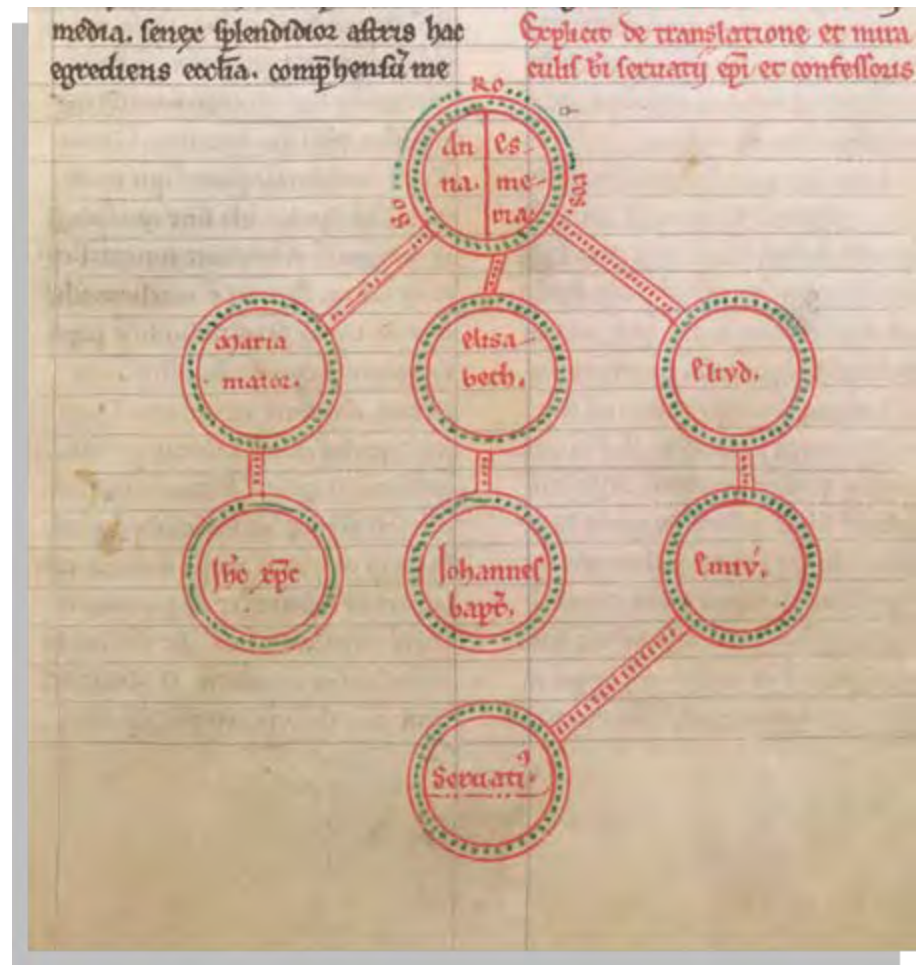 media. senex splendidior astris hac
egrediens ecclia. comphensū me
Explicit de translatione et mira
culis bi seruatij epi et confessoris
so ro res.
an na. es me ria.
Maria
maior.
elisa
beth.
eliud.
Ihc xpc
Iohannes
bapt.
emiu.
Seruati9.